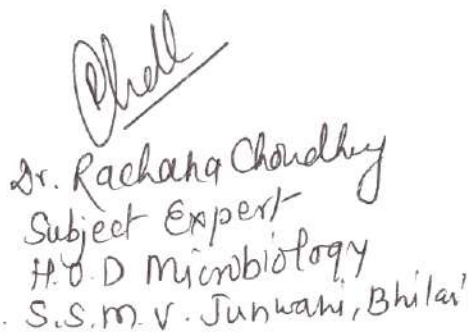 Dr. Rachana Choudhury
Subject Expert
H.O.D Microbiology
S.S.M.V. Junwani, Bhilai